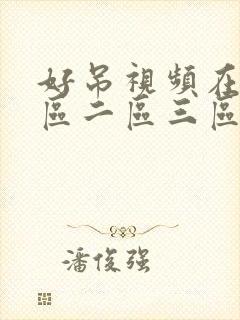 好吊視頻在
區二區三區
潘俊强